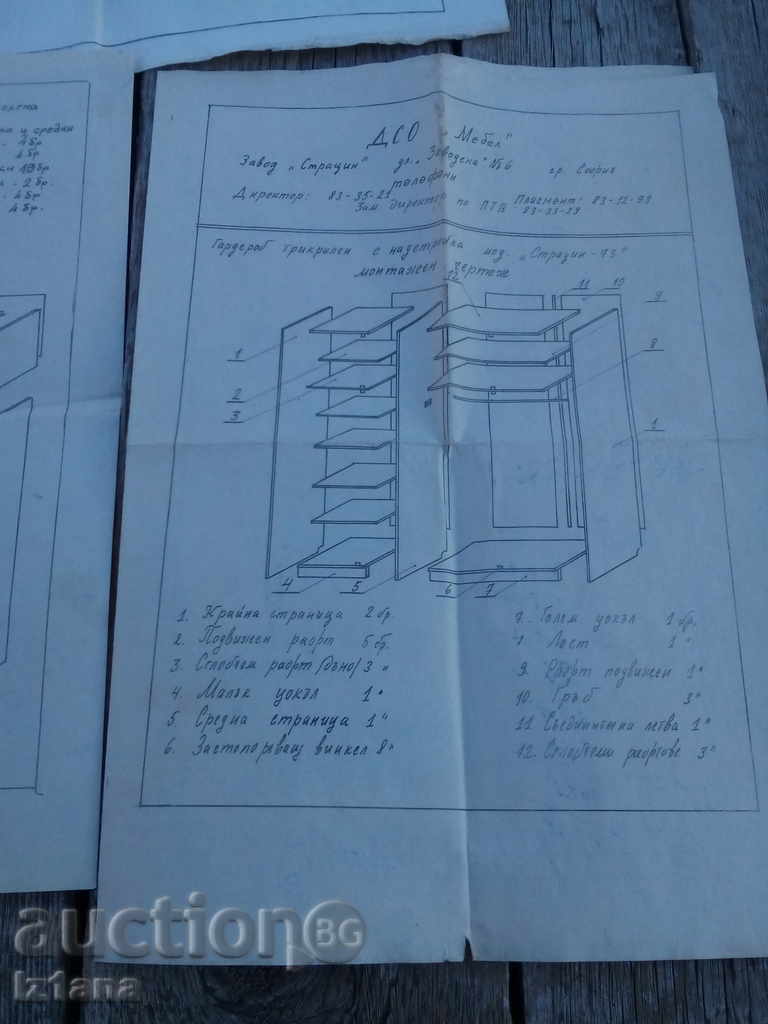 - 4 бр.
- 2 бр.
4 бр.
ДСО „Мебел"
Завод „Страцин" ул. „Заводска" №6 гр. София
телефони
Директор: 83-35-21 Пласмент: 83-12-93
Зам. директор по ПТВ 83-33-29
Гардероб трикрилен с надстройка мод. „Страцин-75"
монтажен чертеж
12 11 10 9
1 8
2
3 1
4 5 6 7
1. Крайна страница 2 бр.
2. Подвижен рафт 5 бр.
3. Сглобяем рафт /дъно/ 3 "
4. Малък цокъл 1 "
5. Средна страница 1 "
6. Застопоряващ винкел 8 "
7. Голям цокъл 1 бр.
Лост 1 "
9. Рафт подвижен 1 "
10. Гръб 3 "
11. Съединителна летва 1 "
12. Сглобяеми рафтове 3 "
auctionBG
Iz1ana